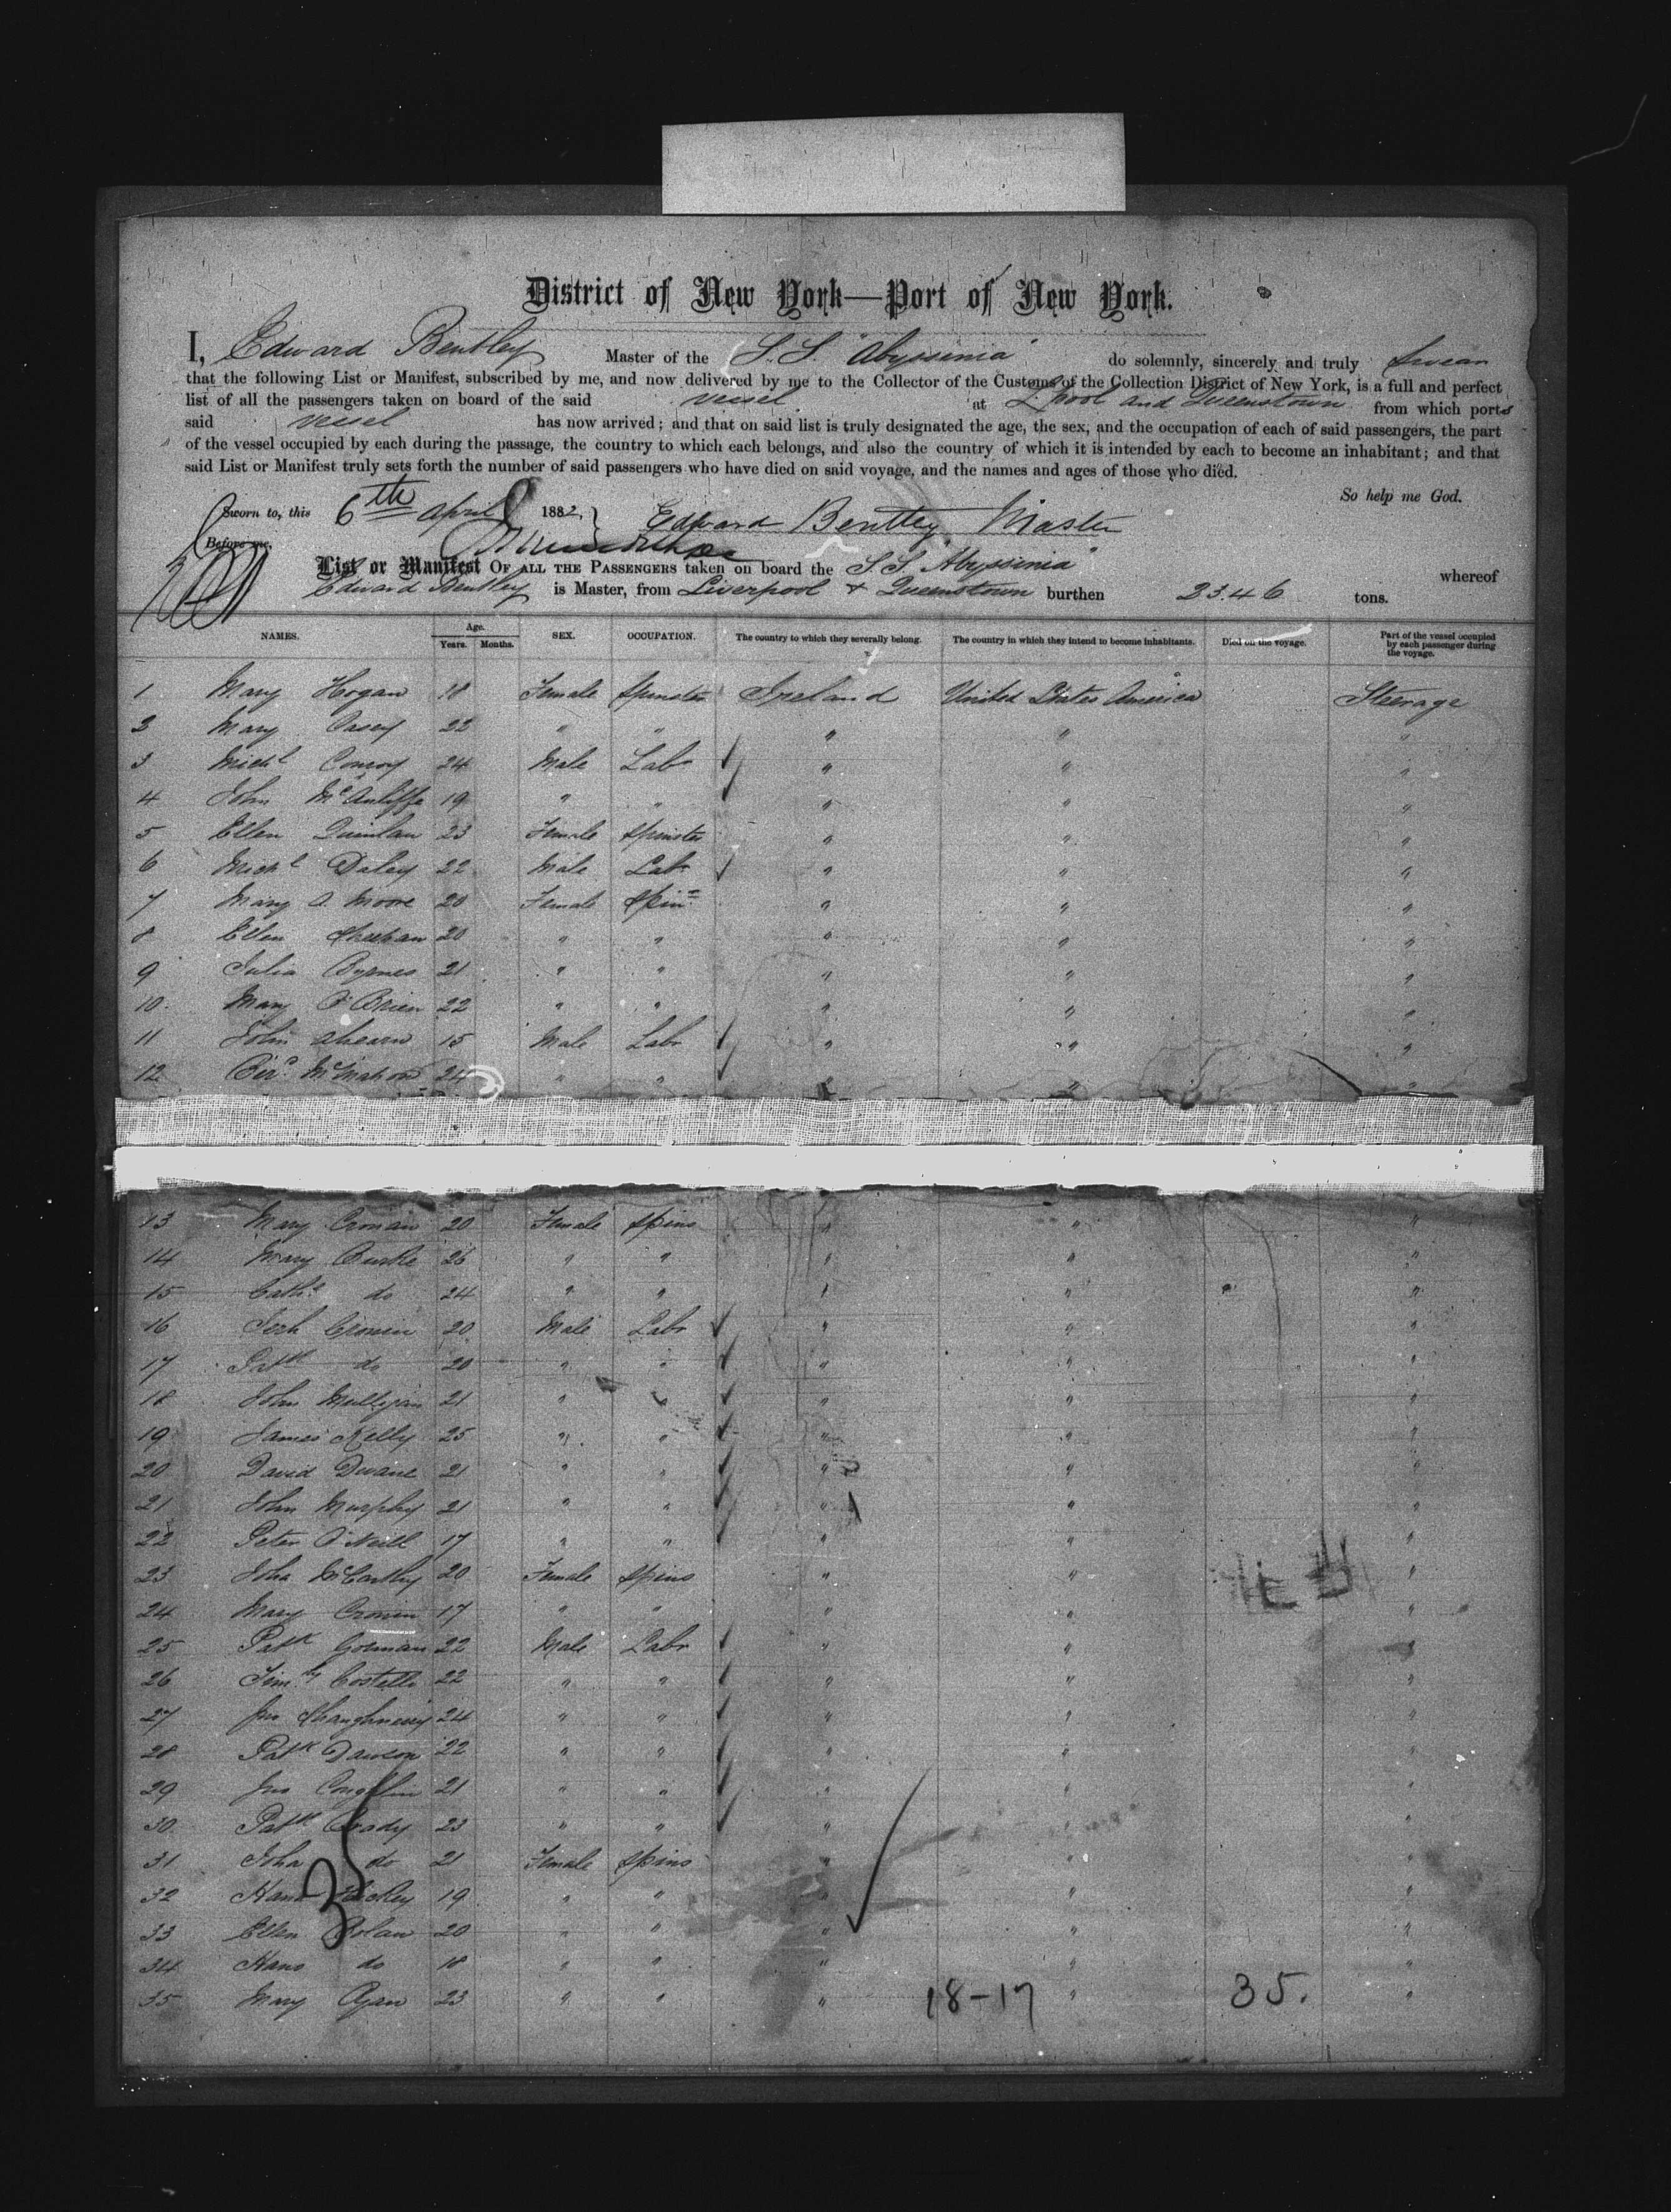 District of New York—Port of New York.
I, Edward Bentley Master of the S.S. "Abyssinia" do solemnly, sincerely and truly swear
that the following List or Manifest, subscribed by me, and now delivered by me to the Collector of the Customs of the Collection District of New York, is a full and perfect
list of all the passengers taken on board of the said vessel at L'pool and Queenstown from which ports
said vessel has now arrived; and that on said list is truly designated the age, the sex, and the occupation of each of said passengers, the part
of the vessel occupied by each during the passage, the country to which each belongs, and also the country of which it is intended by each to become an inhabitant; and that
said List or Manifest truly sets forth the number of said passengers who have died on said voyage, and the names and ages of those who died.
So help me God.
Sworn to, this 6th April 1882, Edward Bentley Master
Before me,
List or Manifest OF ALL THE PASSENGERS taken on board the S.S. "Abyssinia" whereof
Edward Bentley is Master, from Liverpool & Queenstown burthen 2346 tons.
NAMES. Age. Years. Months. SEX. OCCUPATION. The country to which they severally belong. The country in which they intend to become inhabitants. Died on the voyage. Part of the vessel occupied by each passenger during the voyage.
1 Mary Hogan 18 Female Spinster Ireland United States America Steerage
2 Mary Casey 22 " " " " "
3 Michl Conroy 24 Male Labr " " "
4 John McAuliffe 19 " " " " "
5 Ellen Quinlan 23 Female Spinster " " "
6 Michl Daley 22 Male Labr " " "
7 Mary A. Moore 20 Female Spinr " " "
8 Ellen Sheehan 20 " " " " "
9 Julia Byrnes 21 " " " " "
10 Mary O'Brien 22 " " " " "
11 John Ahearn 15 Male Labr " " "
12 McMahon 24 " " " " "
13 Mary Cronan 20 Female Spins " " "
14 Mary Burke 26 " " " " "
15 Cathe do 24 " " " " "
16 Jerh Cronin 20 Male Labr " " "
17 Patk do 20 " " " " "
18 John Mulligan 21 " " " " "
19 James Kelly 25 " " " " "
20 David Dwane 21 " " " " "
21 John Murphy 21 " " " " "
22 Peter O'Neill 17 " " " " "
23 Joha McCarthy 20 Female Spins " " "
24 Mary Cronin 17 " " " " "
25 Patk Gorman 22 Male Labr " " "
26 Timy Costello 22 " " " " "
27 Jno Shaughnessy 24 " " " " "
28 Patk Dawson 22 " " " " "
29 Jno Coughlin 21 " " " " "
30 Patk Brady 23 " " " " "
31 Joha do 21 Female Spins " " "
32 Hana Hickey 19 " " " " "
33 Ellen Bolan 20 " " " " "
34 Hano do 18 " " " " "
35 Mary Ryan 23 " " " " "
18-17 35.
3